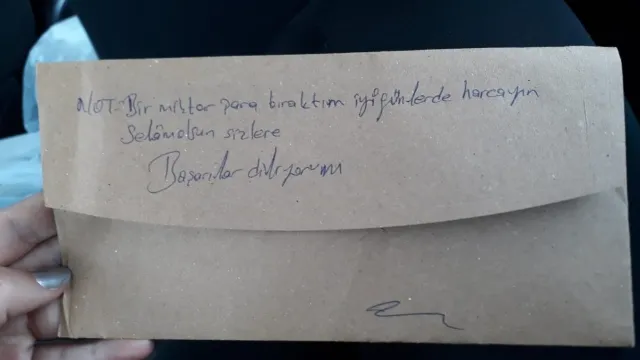 NOT: Bir miktar para bıraktım iyi günlerde harcayın
Selâm olsun sizlere
Başarılar diliyorum